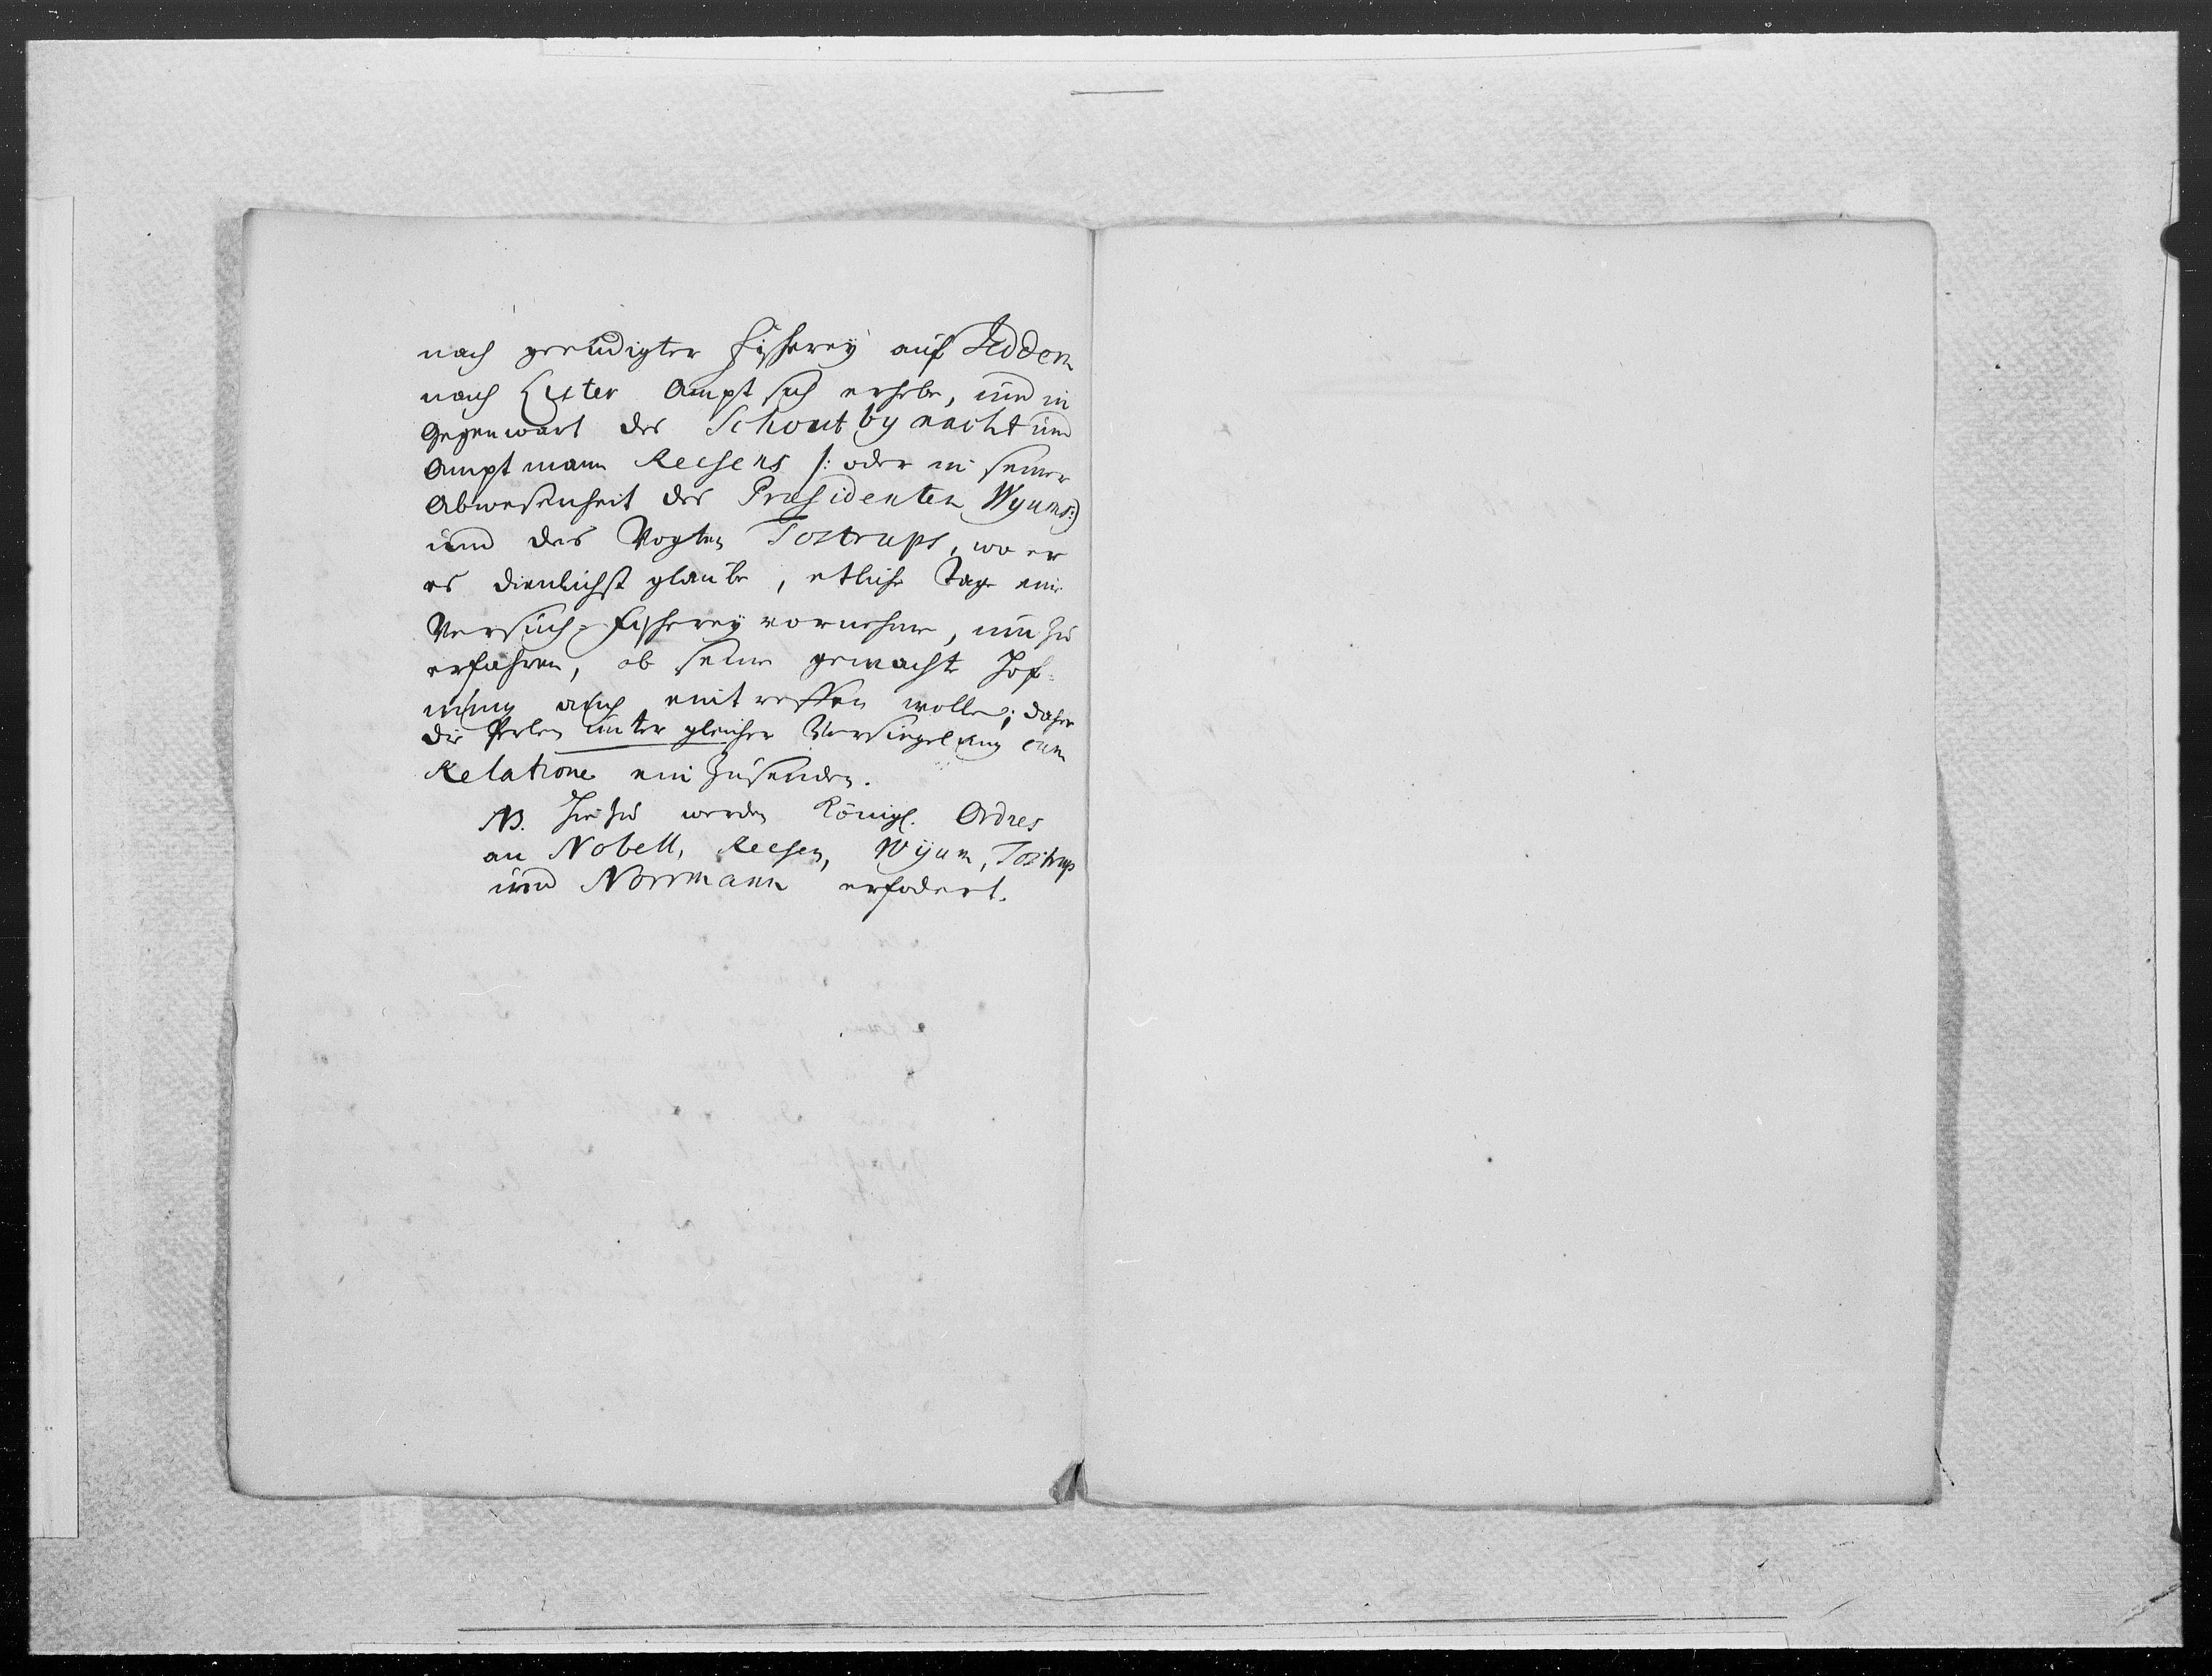 nach geendigter Fischerey auf Jedderen
nach Lister Ampt sich erhebe, und in
Gegenwart des Schout by nacht und
Amptmann Reesens /: oder in seiner
Abwesenheit des Præsidenten Wyums:)
und des Vogten Tostrups, wo er
es dienlichst glaube, etliche Tage eine
Versuch-Fischerey vornehme, um zu
erfahren, ob seine gemachte Hof-
nung auch eintreffen wolle; daher
die Perlen unter gleicher Versiegelung cum
Relatione einzusenden.
NB. Hiezu werden Königl. Ordres
an Nobell, Reesen, Wyum, Tostrup
und Norrmann erfodert.